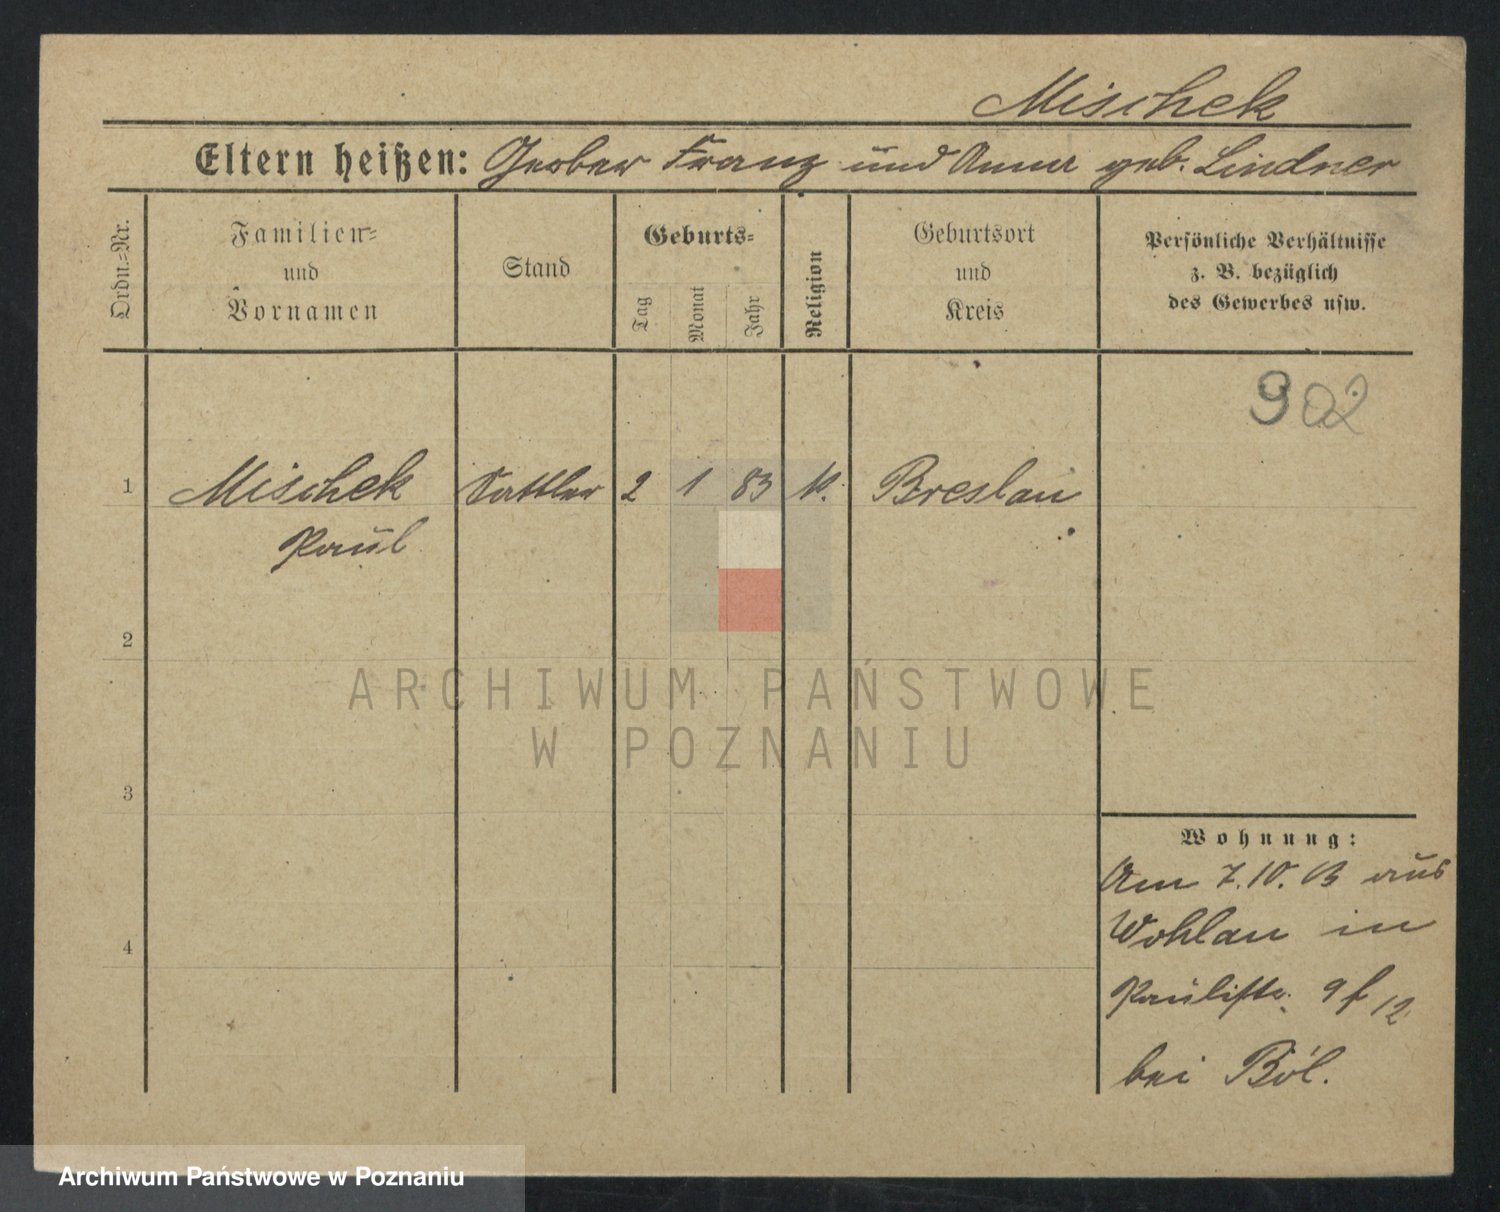 Mischek
Eltern heißen: Gerber Franz und Anna geb. Lindner
Ordn.-Nr.
Familien-
und
Vornamen
Stand
Geburts-
Tag
Monat
Jahr
Religion
Geburtsort
und
Kreis
Persönliche Verhältnisse
z. B. bezüglich
des Gewerbes usw.
902
1 Mischek Sattler 2 1 83 K. Breslau
Paul
2
3
4
Wohnung:
Am 7.10. 03 aus
Wohlau in
Paulistr. 9 f 12
bei Böl.
ARCHIWUM PAŃSTWOWE
W POZNANIU
Archiwum Państwowe w Poznaniu